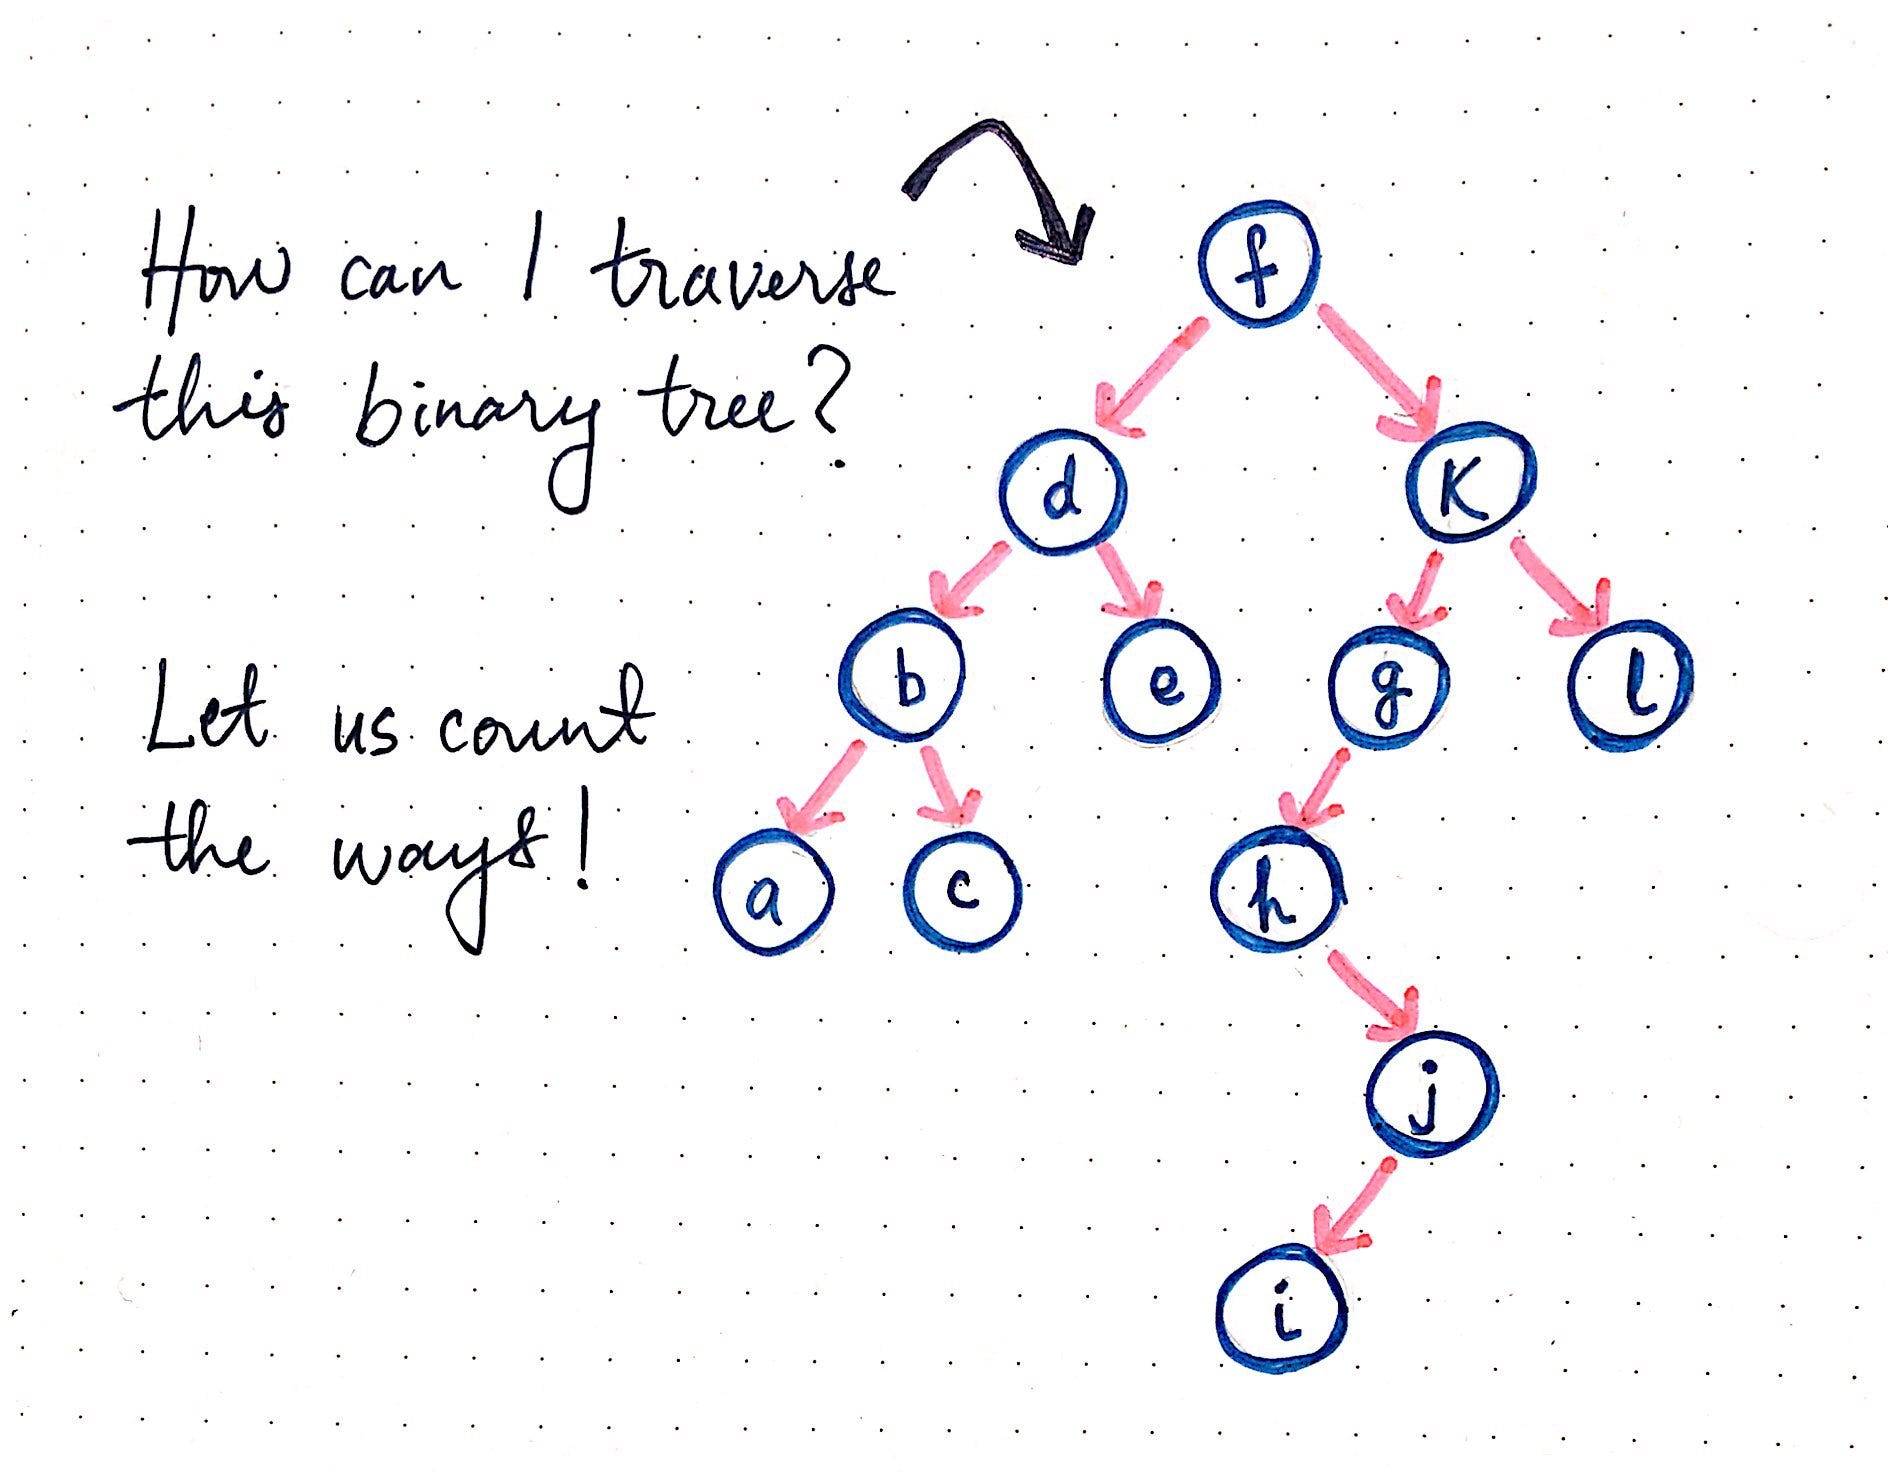 How can I traverse
this binary tree?
Let us count
the ways!
f
d K
b e g l
a c h
j
i